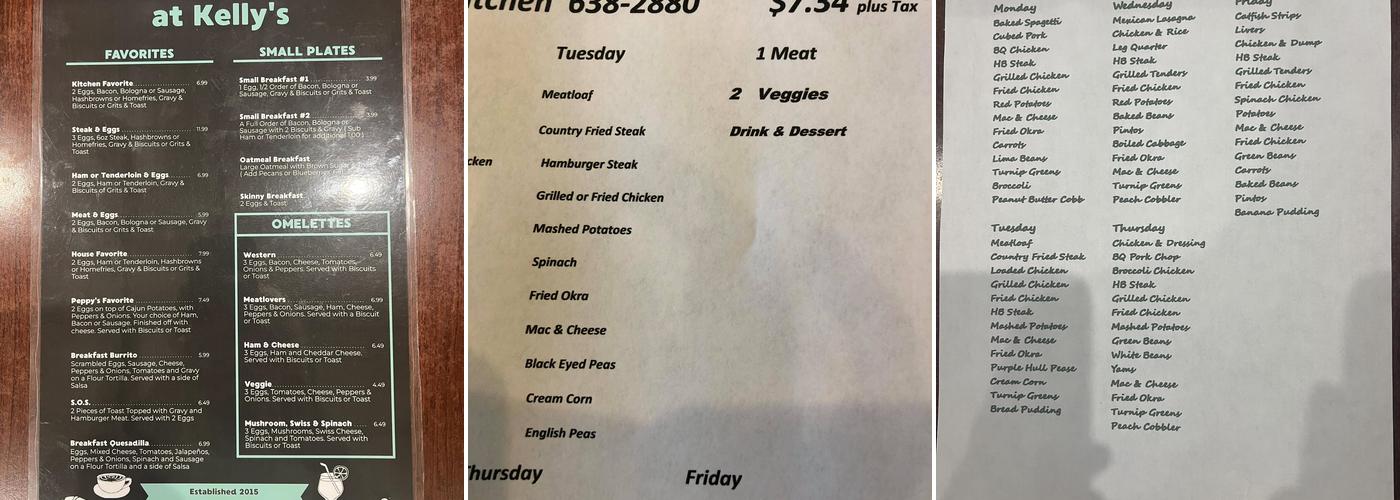 at Kelly's
FAVORITES
Kitchen Favorite 6.99
2 Eggs, Bacon, Bologna or Sausage,
Hashbrowns or Homefries, Gravy &
Biscuits or Grits & Toast
Steak & Eggs 11.99
3 Eggs, 6oz Steak, Hashbrowns or
Homefries, Gravy & Biscuits or Grits &
Toast
Ham or Tenderloin & Eggs 6.99
2 Eggs, Ham or Tenderloin, Gravy &
Biscuits of Grits & Toast
Meat & Eggs 5.99
2 Eggs, Bacon, Bologna or Sausage, Gravy
& Biscuits or Grits & Toast
House Favorite 7.99
2 Eggs, Ham or Tenderloin, Hashbrowns
or Homefries, Gravy & Biscuits or Grits &
Toast
Peppy's Favorite 7.49
2 Eggs on top of Cajun Potatoes, with
Peppers & Onions. Your choice of Ham,
Bacon or Sausage. Finished off with
cheese. Served with Biscuits or Toast
Breakfast Burrito 5.99
Scrambled Eggs, Sausage, Cheese,
Peppers & Onions, Tomatoes and Gravy
on a Flour Tortilla. Served with a side of
Salsa
S.O.S. 6.49
2 Pieces of Toast Topped with Gravy and
Hamburger Meat. Served with 2 Eggs
Breakfast Quesadilla 6.99
Eggs, Mixed Cheese, Tomatoes, Jalapeños,
Peppers & Onions, Spinach and Sausage
on a Flour Tortilla and a side of Salsa
SMALL PLATES
Small Breakfast #1 3.99
1 Egg, 1/2 Order of Bacon, Bologna or
Sausage, Gravy & Biscuits or Grits & Toast
Small Breakfast #2 3.99
A Full Order of Bacon, Bologna or
Sausage with 2 Biscuits & Gravy ( Sub
Ham or Tenderloin for additional 1.00 )
Oatmeal Breakfast
Large Oatmeal with Brown Sugar & Toast
( Add Pecans or Blueberries
Skinny Breakfast
2 Eggs & Toast
OMELETTES
Western 6.49
3 Eggs, Bacon, Cheese, Tomatoes,
Onions & Peppers. Served with Biscuits
or Toast
Meatlovers 6.99
3 Eggs, Bacon, Sausage, Ham, Cheese,
Peppers & Onions. Served with a Biscuit
or Toast
Ham & Cheese 6.49
3 Eggs, Ham and Cheddar Cheese.
Served with Biscuits or Toast
Veggie 4.49
3 Eggs, Tomatoes, Cheese, Peppers &
Onions. Served with Biscuits or Toast
Mushroom, Swiss & Spinach 6.49
3 Eggs, Mushrooms, Swiss Cheese,
Spinach and Tomatoes. Served with
Biscuits or Toast
Established 2015
tchen 638-2880 $7.54 plus Tax
Tuesday
Meatloaf
Country Fried Steak
cken
Hamburger Steak
Grilled or Fried Chicken
Mashed Potatoes
Spinach
Fried Okra
Mac & Cheese
Black Eyed Peas
Cream Corn
English Peas
1 Meat
2 Veggies
Drink & Dessert
Thursday
Friday
Monday
Baked Spagetti
Cubed Pork
BQ Chicken
HB Steak
Grilled Chicken
Fried Chicken
Red Potatoes
Mac & Cheese
Fried Okra
Carrots
Lima Beans
Turnip Greens
Broccoli
Peanut Butter Cobb
Wednesday
Mexican Lasagna
Chicken & Rice
Leg Quarter
HB Steak
Grilled Tenders
Fried Chicken
Red Potatoes
Baked Beans
Pintos
Boiled Cabbage
Fried Okra
Mac & Cheese
Turnip Greens
Peach Cobbler
Friday
Catfish Strips
Livers
Chicken & Dump
HB Steak
Grilled Tenders
Fried Chicken
Spinach Chicken
Potatoes
Mac & Cheese
Fried Chicken
Green Beans
Carrots
Baked Beans
Pintos
Banana Pudding
Tuesday
Meatloaf
Country Fried Steak
Loaded Chicken
Grilled Chicken
Fried Chicken
HB Steak
Mashed Potatoes
Mac & Cheese
Fried Okra
Purple Hull Pease
Cream Corn
Turnip Greens
Bread Pudding
Thursday
Chicken & Dressing
BQ Pork Chop
Broccoli Chicken
HB Steak
Grilled Chicken
Fried Chicken
Mashed Potatoes
Green Beans
White Beans
Yams
Mac & Cheese
Fried Okra
Turnip Greens
Peach Cobbler